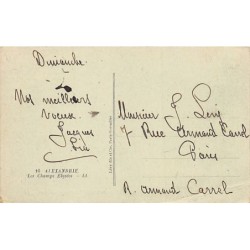 Dimanche
Nos meilleurs
voeux.
Jacques
16 ALEXANDRIE
Les Champs Elysées - LL
Monsieur J. Lévy
7 Rue Armand Carrel
Paris
R. Armand Carrel